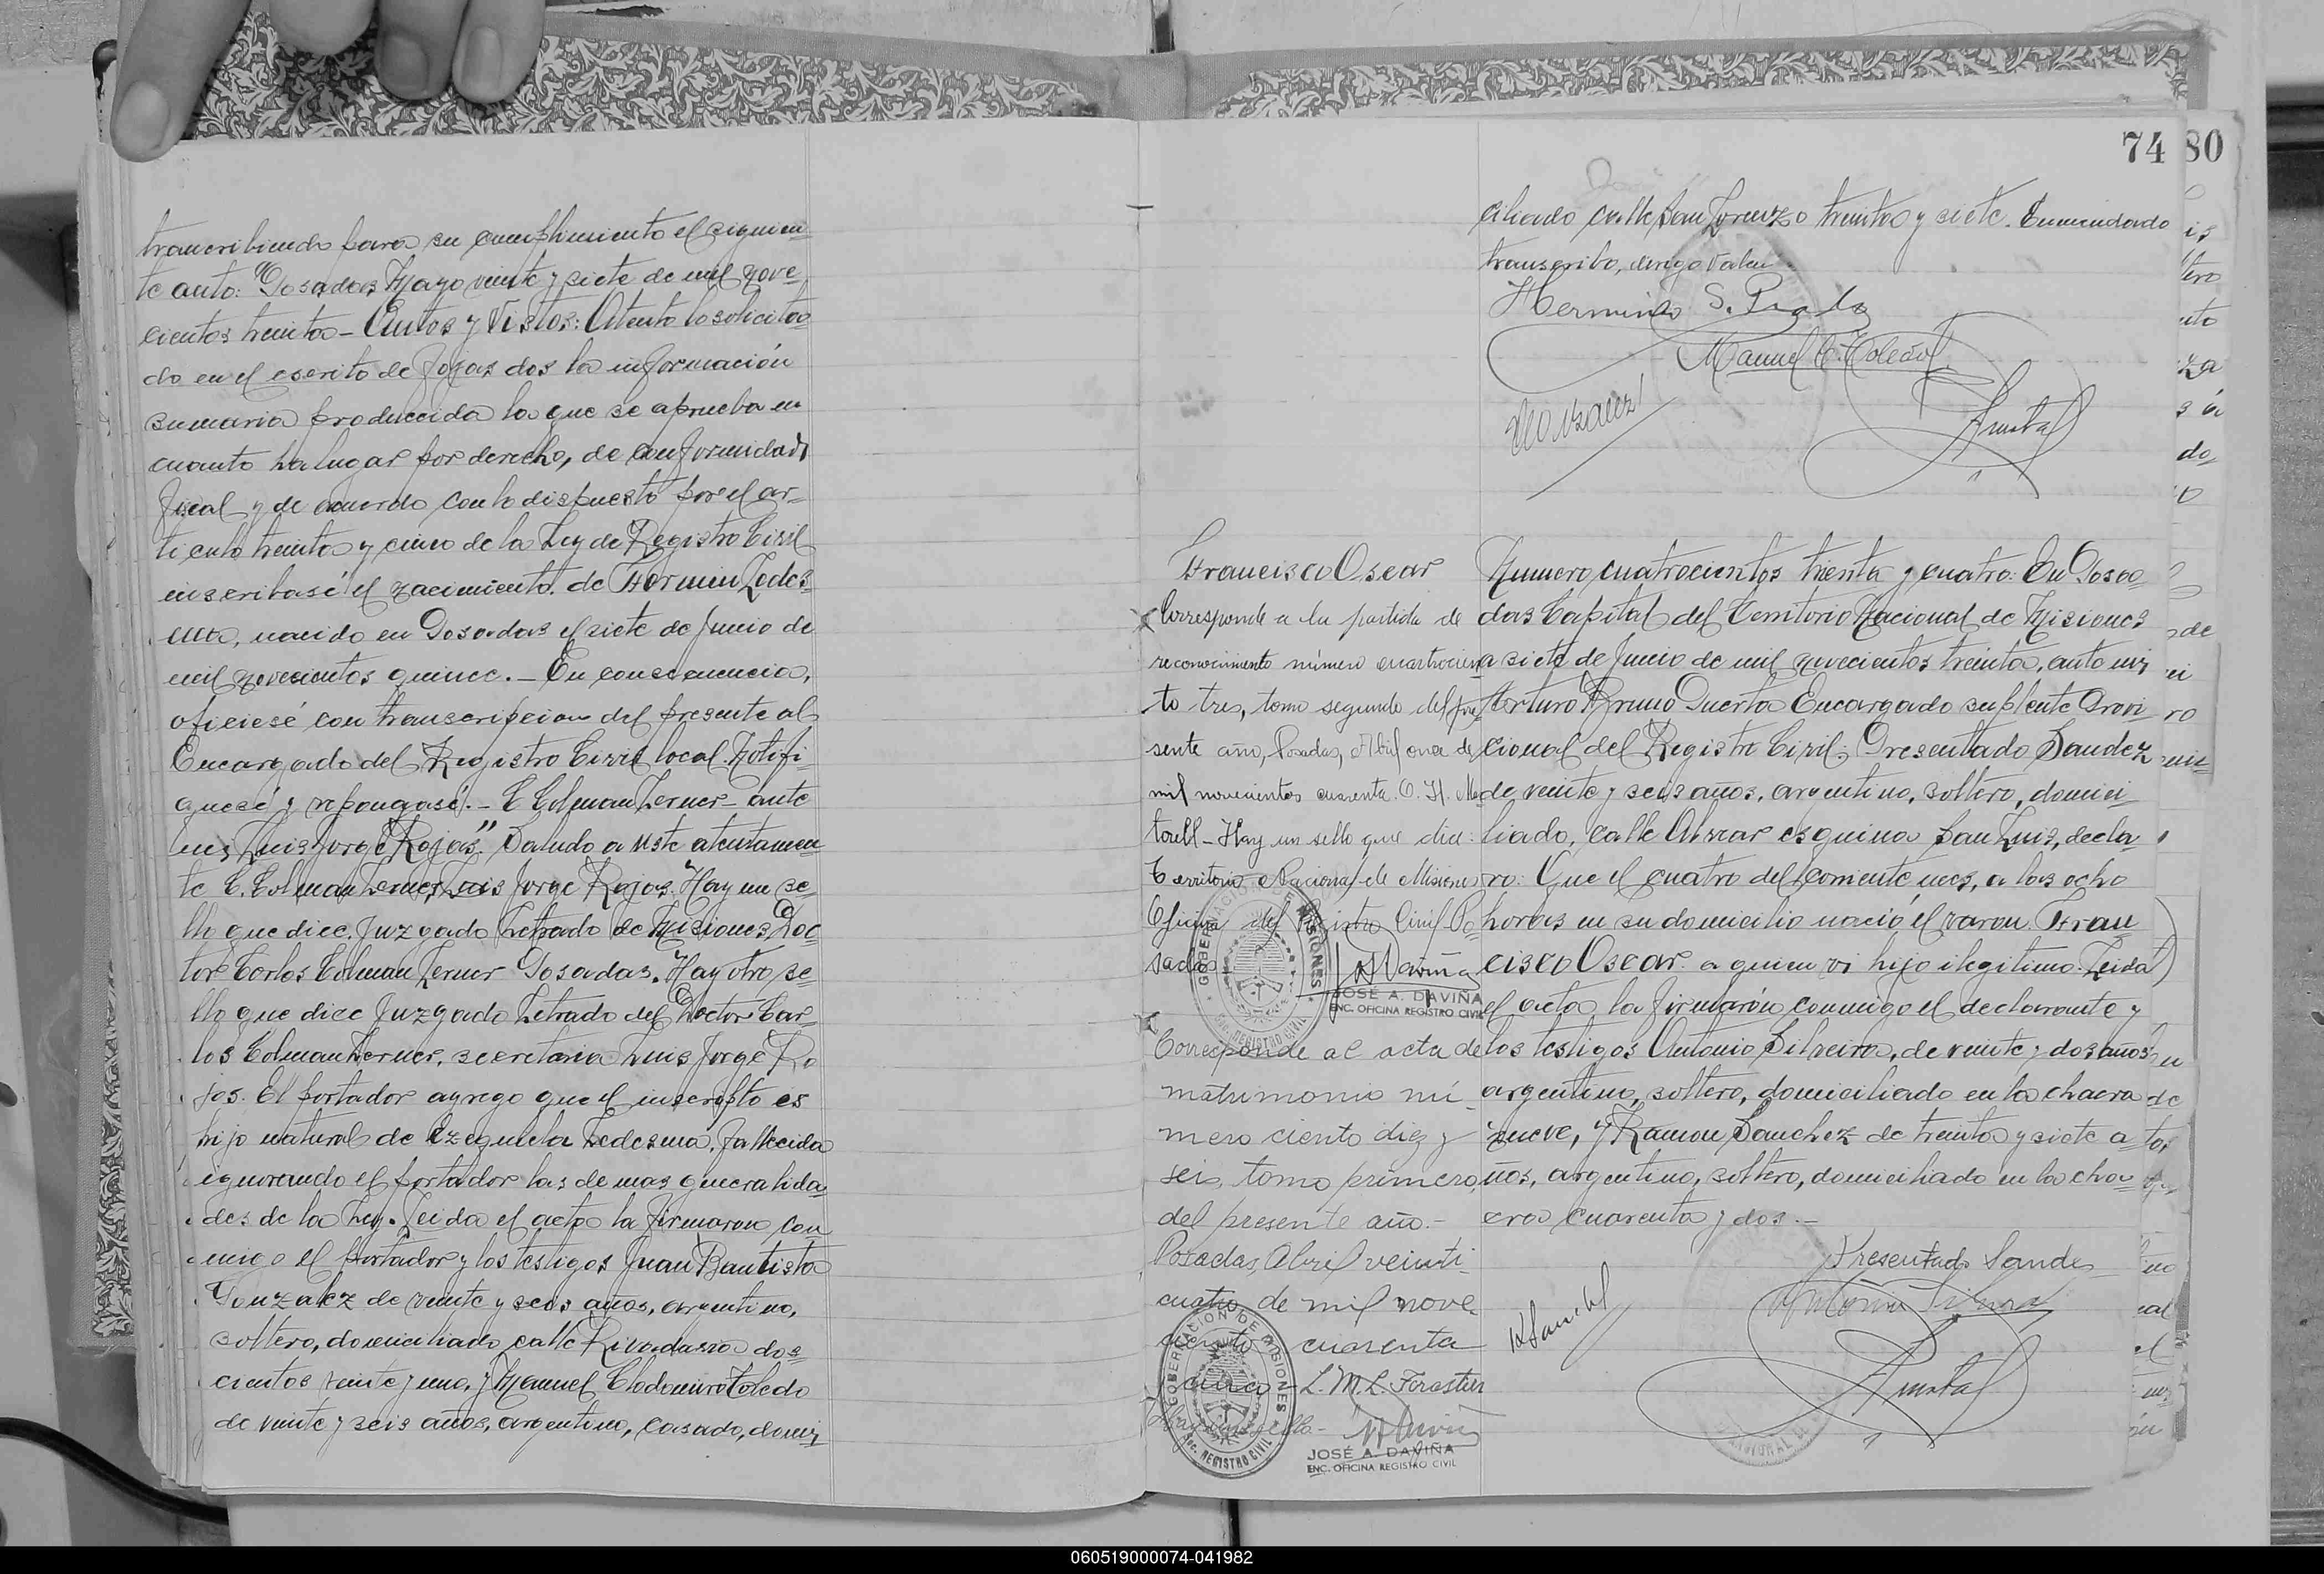 transcribiendo para su cumplimiento el siguien-
te auto: "Posadas, Mayo veinte y siete de mil nove-
cientos treinta - Autos y Vistos: Atento lo solicita-
do en el escrito de fojas dos la información
sumaria producida la que se aprueba en
cuanto ha lugar por derecho, de conformidad
fiscal y de acuerdo con lo dispuesto por el ar-
ticulo treinta y cinco de la Ley de Registro Civil
inscribasé el nacimiento de Fermin Ledes-
ma, nacido en Posadas el siete de Junio de
mil novecientos quince. - En consecuencia,
oficiesé con transcripcion del presente al
Encargado del Registro Civil local. Notifi
quesé y repongasé. - C. Colman Lerner - ante
mi, Luis Jorge Rojas." Saludo a Uste atentamen
te C. Colman Lerner, Luis Jorge Rojas. Hay un se-
llo que dice. Juzgado Letrado de Misiones, Doc
tor Carlos Colman Lerner Posadas. Hay otro se-
llo que dice Juzgado Letrado del Doctor Car-
los Colman Lerner, secretaria Luis Jorge Ro
jas. El portador agrego que el inscripto es
hijo natural de Ezequiela Ledesma, fallecida
ignorando el portador las demas generalida
des de la Ley. Leida el acta la firmaron con
migo el portador y los testigos Juan Bautista
Gonzalez de veinte y seis años, argentino,
soltero, domiciliado calle Rivadavia dos-
cientos veinte y uno, y Manuel Clodomiro Toledo
de veinte y seis años, argentino, casado, domi-
74
80
ciliado calle San Lorenzo treinta y siete. Enmendado
transcribo, dirigo Valen
Herminio S.
Manuel C. Toledo
Francisco Oscar
Corresponde a la partida de
reconocimiento número cuatrocien
to tres, tomo segundo del pre
sente año, Posadas, Abril once de
mil novecientos cuarenta. O. H. Mar
torell - Hay un sello que dice:
Territorio Nacional de Misiones
Oficina del Registro Civil Po
sadas
GOBERNACION DE MISIONES
REGISTRO CIVIL
JOSÉ A. DAVIÑA
ENC. OFICINA REGISTRO CIVIL
Corresponde al acta de
matrimonio nú-
mero ciento diez y
seis, tomo primero,
del presente año. -
Posadas, Abril veinti-
cuatro de mil nove-
cientos cuarenta
y cinco - L. M. L. Forastier
Hay un sello -
GOBERNACION DE MISIONES
SEC. REGISTRO CIVIL
JOSÉ A. DAVIÑA
ENC. OFICINA REGISTRO CIVIL
Numero cuatrocientos trienta y cuatro: En Posa-
das Capital del Territorio Nacional de Misiones
a siete de Junio de mil novecientos treinta, ante mi,
Arturo Bruno Puerta Encargado suplente Provi
cional del Registro Civil; Presentado Sandez
de veinte y seis años, argentino, soltero, domici
liado, calle Alvear esquina San Luis, decla-
ro: Que el cuatro del corriente mes, a las ocho
horas en su domicilio nació el varon Fran
cisco Oscar a quien vi hijo ilegitimo. Leida
el acta la firmarón conmigo el declarante y
los testigos Antonio Silveira, de veinte y dos años
argentino, soltero, domiciliado en la chacra
nueve, y Ramon Sanchez de treinta y siete a
ños, argentino, soltero, domiciliado en la cha-
cra cuarenta y dos. -
Presentado Sandez
R Sanchez
060519000074-041982